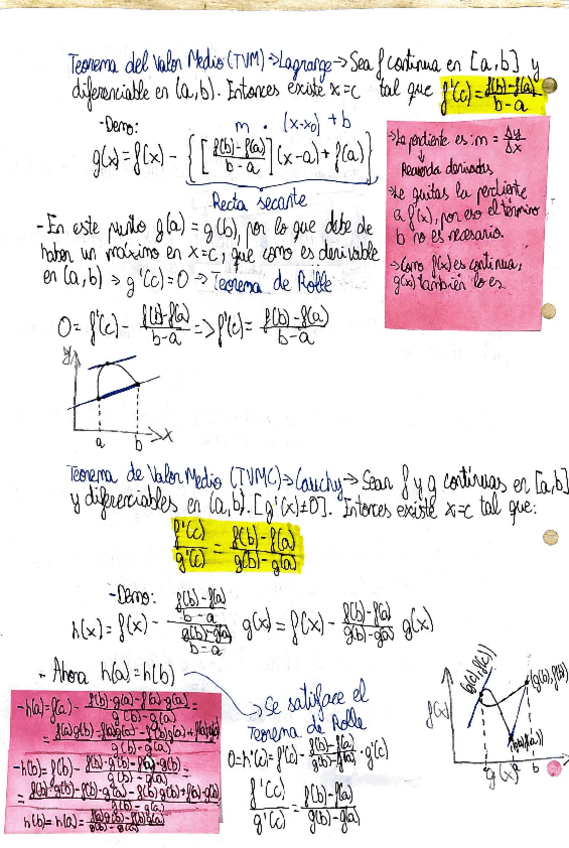 Teorema del Valor Medio (TVM) → Lagrange → Sea f continua en [a,b] y
diferenciable en (a,b). Entonces existe x=c tal que f'(c) = f(b)-f(a) / b-a
-Demo:
m · (x-x0) + b
g(x) = f(x) - { [ f(b)-f(a) / b-a ] (x-a) + f(a) }
Recta secante
→ La pendiente es: m = Δy / Δx
Recuerda derivadas
→ Le quitas la pendiente
a f(x), por eso el término
b no es necesario.
→ Como f(x) es continua,
g(x) también lo es.
- En este punto g(a) = g(b), por lo que debe de
haber un máximo en x=c, que como es derivable
en (a,b) → g'(c) = 0 → Teorema de Rolle
0 = f'(c) - f(b)-f(a) / b-a => f'(c) = f(b)-f(a) / b-a
y
a b x
Teorema de Valor Medio (TVMC) → Cauchy → Sean f y g contínuas en [a,b]
y diferenciables en (a,b). [g'(x)≠0]. Entonces existe x=c tal que:
f'(c) / g'(c) = f(b)-f(a) / g(b)-g(a)
-Demo:
h(x) = f(x) - f(b)-f(a) / b-a / g(b)-g(a) / b-a g(x) = f(x) - f(b)-f(a) / g(b)-g(a) g(x)
- Ahora h(a) = h(b)
→ Se satiface el
Teorema de Rolle
0 = h'(c) = f'(c) - f(b)-f(a) / g(b)-g(a) · g'(c)
f'(c) / g'(c) = f(b)-f(a) / g(b)-g(a)
-h(a) = f(a) - f(b)·g(a)-f(a)·g(a) / g(b)-g(a) =
-h(b) = f(b) - f(b)·g(b)-f(a)·g(b) / g(b)-g(a) =
h(b) = h(a) = f(a)g(b)-f(b)g(a) / g(b)-g(a)
f(x)
(g(b),f(b))
g(x)
b